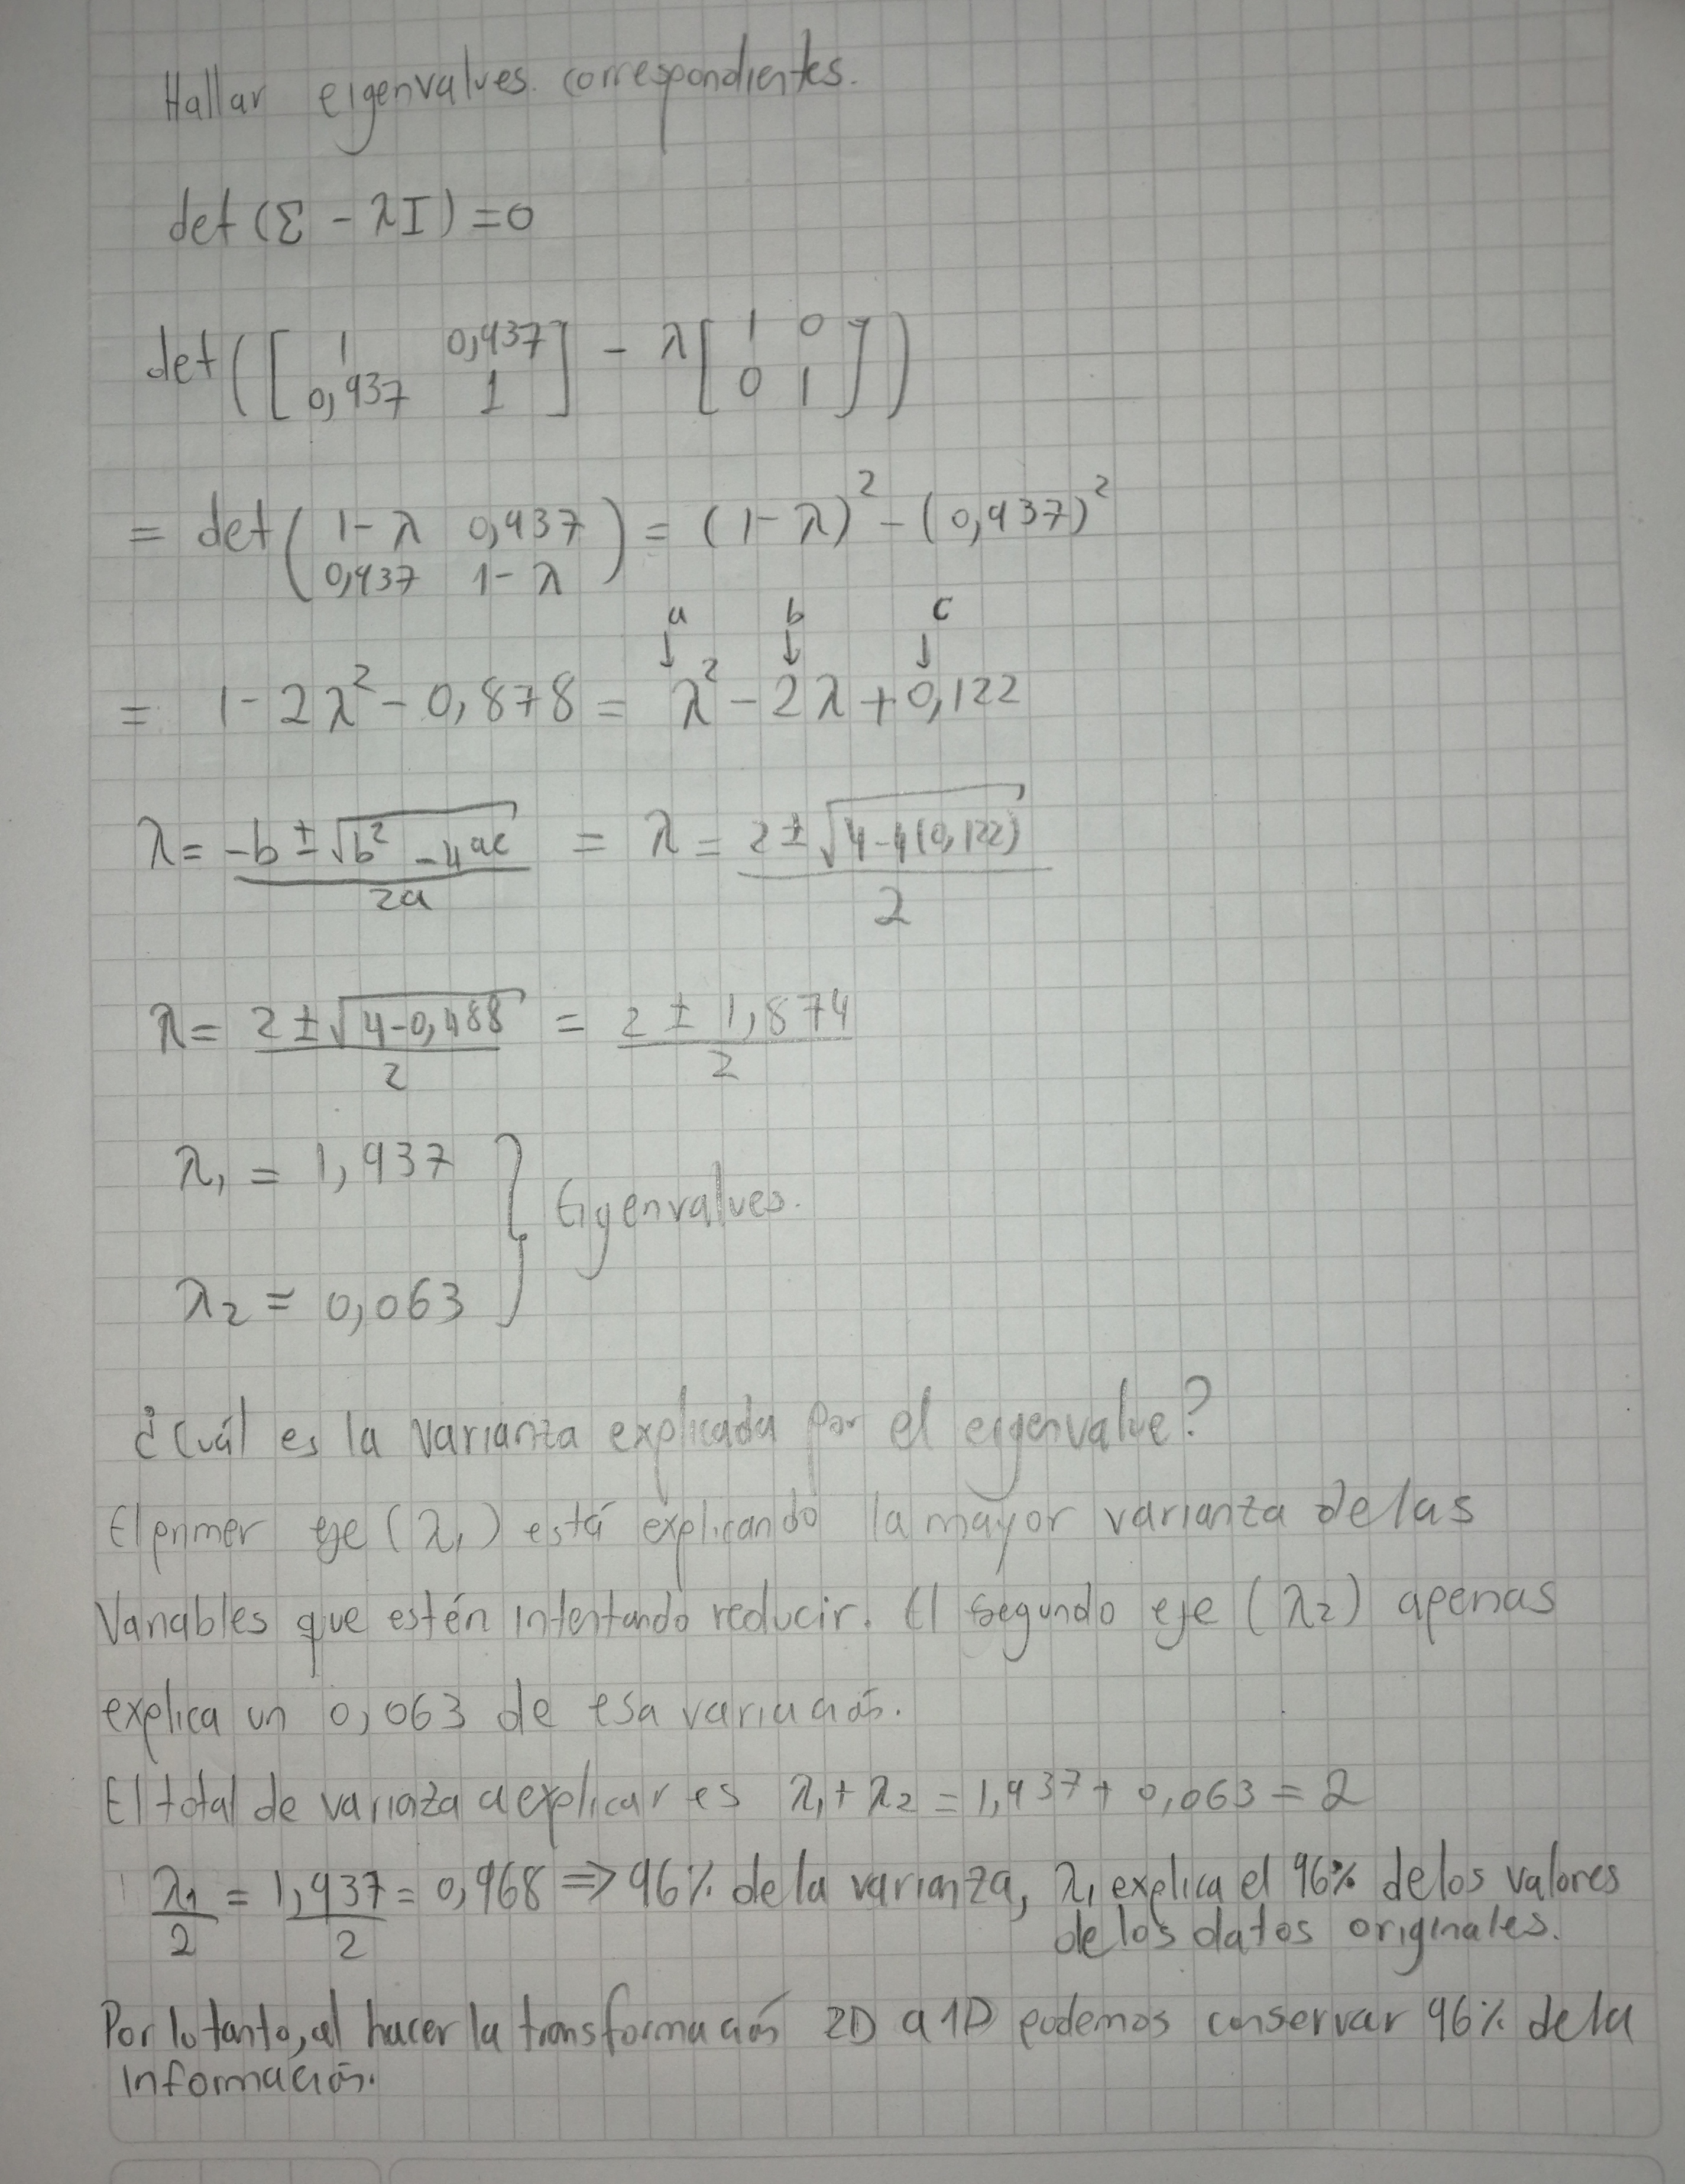 Hallar eigenvalues. correspondientes.
det (Σ - λI) = 0
det ( [ 1 0,937 ] - λ [ 1 0 ] )
0,937 1 0 1
= det ( 1-λ 0,937 ) = (1-λ)² - (0,937)²
0,937 1-λ
a b c
↓ ↓ ↓
= 1-2λ² - 0,878 = λ² - 2λ + 0,122
λ = -b ± √b² - 4ac = λ = 2 ± √4-4(0,122)
2a 2
λ = 2 ± √4-0,488 = 2 ± 1,874
2 2
λ₁ = 1,937
} Eigenvalues.
λ₂ = 0,063
¿Cuál es la varianza explicada por el eigenvalue?
El primer eje (λ₁) está explicando la mayor varianza de las
Variables que estén intentando reducir. El segundo eje (λ₂) apenas
explica un 0,063 de esa variación.
El total de varianza a explicar es λ₁ + λ₂ = 1,937 + 0,063 = 2
λ₁ = 1,937 = 0,968 ⇒ 96% de la varianza, λ₁ explica el 96% de los valores
2 2 de los datos originales.
Por lo tanto, al hacer la transformación 2D a 1D podemos conservar 96% de la
información.